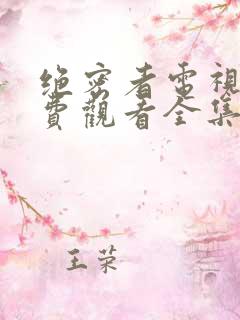 绝密者電視
費觀看全集
王荣